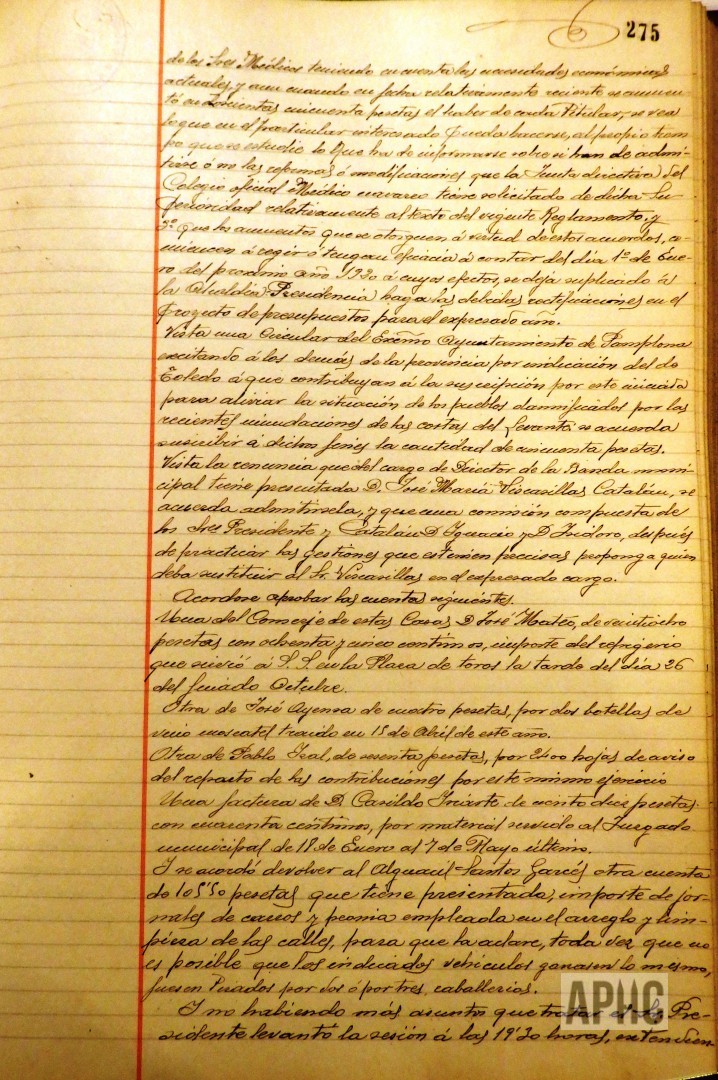 275
de los Sres Médicos teniendo en cuenta las necesidades económicas
actuales, y aun cuando en fecha relativamente reciente se aumen-
tó en doscientas cincuenta pesetas el haber de cada Titular, se vea
lo que en el particular interesado pueda hacerse, al propio tiem-
po que se estudie lo que ha de informarse sobre si han de admi-
tirse ó no las reformas ó modificaciones que la Junta directiva del
Colegio oficial Médico navarro tiene solicitado de dicha Su-
perioridad relativamente al texto del vigente Reglamento: y
3º que los aumentos que se otorguen á virtud de estos acuerdos, co-
miencen á regir ó tengan eficacia á contar del dia 1º de Ene-
ro del proximo año 1920 á cuyos efectos, se deja suplicado á
la Alcaldia Presidencia haga las debidas rectificaciones en el
Proyecto de presupuestos para el expresado año.
Vista una Circular del Excmo Ayuntamiento de Pamplona
excitando á los demás de la provincia por indicación del de
Toledo á que contribuyan á la suscripción por este iniciada
para aliviar la situación de los pueblos damnificados por las
recientes inundaciones de las costas del Levante se acuerda
suscribir á dichos fines la cantidad de cincuenta pesetas.
Vista la renuncia que del cargo de Director de la Banda muni-
cipal tiene presentada D. José María Viscasillas Catalán, se
acuerda admitirsela, y que una comisión compuesta de
los Sres Presidente y Catalán D. Ignacio y D. Isidoro, después
de practicar las gestiones que estimen precisas proponga quien
deba sustituir al Sr. Viscasillas en el expresado cargo.
Acordose aprobar las cuentas siguientes.
Una del Conserje de estas Casas D. José Mateo, de veintiocho
pesetas con ochenta y cinco centimos, importe del refrigerio
que sirvió á S. S. en la Plaza de toros la tarde del día 26
del finado Octubre.
Otra de José Ayensa de cuatro pesetas, por dos botellas de
vino moscatel traido en 15 de Abril de este año.
Otra de Pablo Leal, de sesenta pesetas, por 2400 hojas de aviso
del reparto de las contribuciones por este mismo ejercicio
Una factura de D. Casildo Iriarte de ciento diez pesetas
con cuarenta céntimos, por material servido al Juzgado
municipal de 18 de Enero al 7 de Mayo último.
Y se acordó devolver al Alguacil Santos Garcés otra cuenta
de 105'50 pesetas que tiene presentada, importe de jor-
nales de carros y peonía empleada en el arreglo y lim-
pieza de las calles, para que la aclare, toda vez que no
es posible que los indicados vehículos ganasen lo mismo,
fuesen tirados por dos ó por tres caballerías.
Y no habiendo más asuntos que tratar el Sr Pre-
sidente levantó la sesión á las 19'30 horas, extendien-
APHC